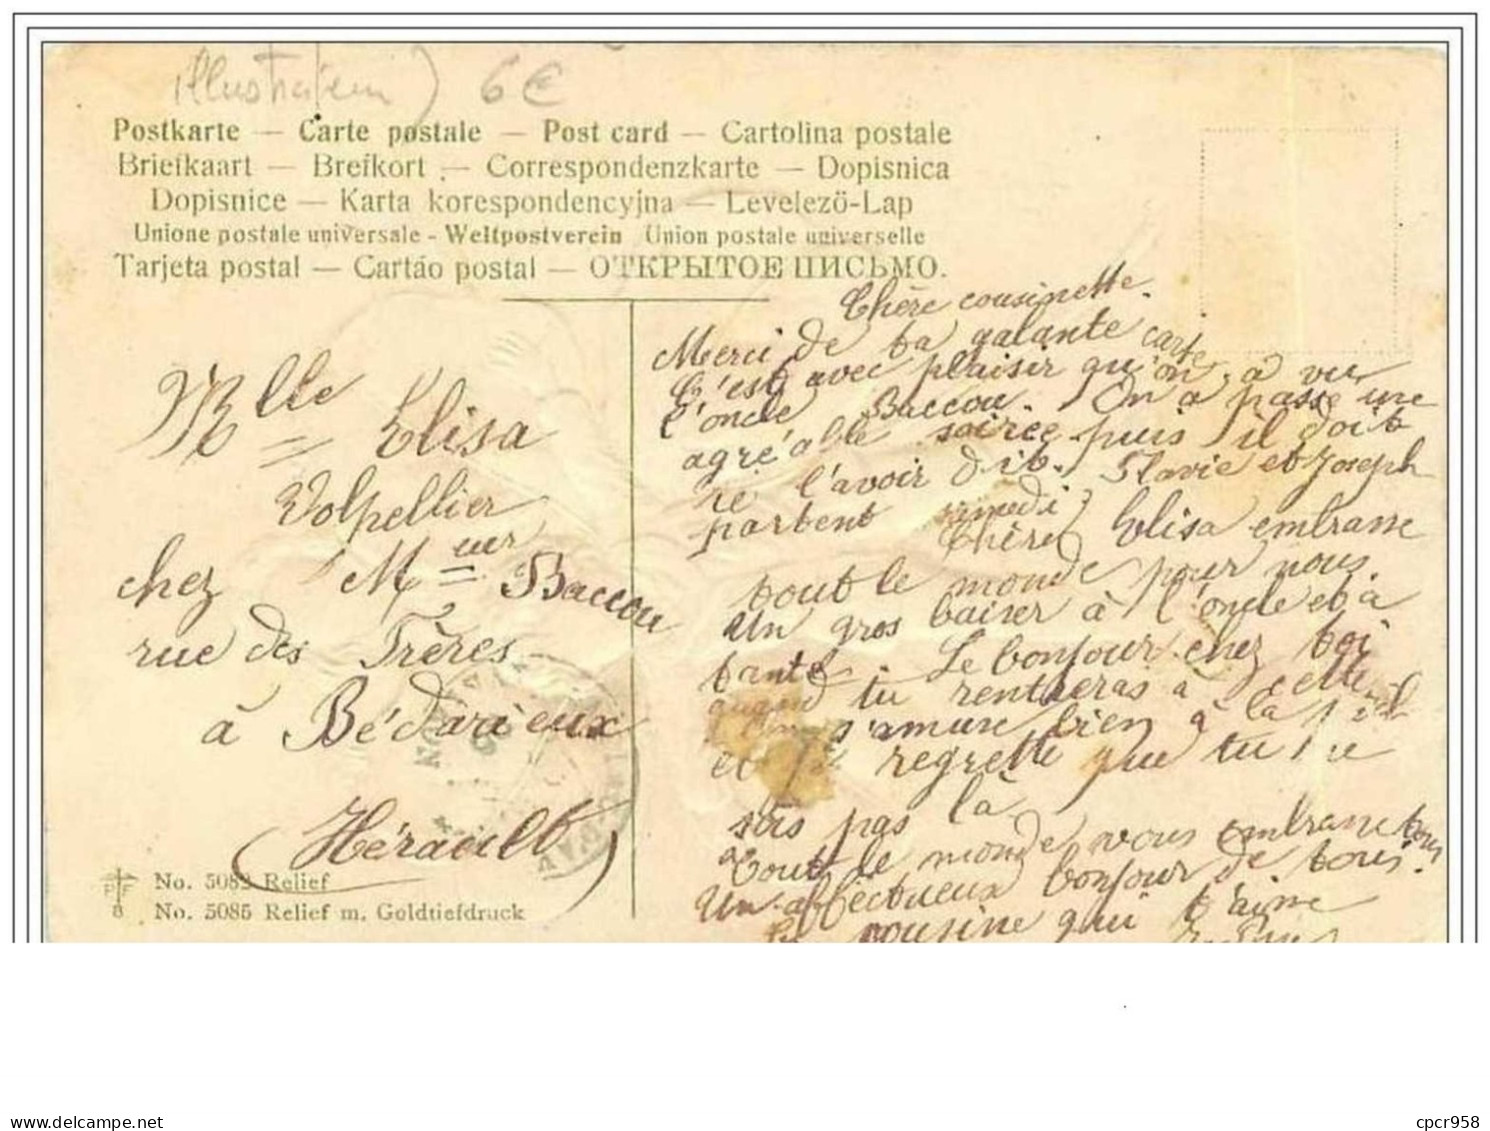 illustrateur) 6€
Postkarte — Carte postale — Post card — Cartolina postale
Briefkaart — Brefkort — Correspondenzkarte — Dopisnica
Dopisnice — Karta korespondencyjna — Levelezö-Lap
Unione postale universale - Weltpostverein Union postale universelle
Tarjeta postal — Cartáo postal — ОТКРЫТОЕ ПИСЬМО.
Mlle Elisa
Volpellier
chez Mur Baccou
rue des Frères
à Bédarieux
(Hérault)
No. 5082 Relief
No. 5085 Relief m. Goldtiefdruck
PF
8
Chère cousinette.
Merci de ta galante carte
C'est avec plaisir qu'on a vu
l'oncle Baccou. On a passé une
agréable soirée puis il doit
te l'avoir dit. Flavie et Joseph
partent
Chère Elisa embrasse
tout le monde pour nous.
Un gros baiser à l'oncle et à
tante. Le bonjour chez toi
quand tu rentreras à Cette
s'amuse bien à la
et regrette que tu ne
sois pas là
Tout le monde vous embrasse tous
Un affectueux bonjour de tous.
ta cousine qui t'aime
cpcr958